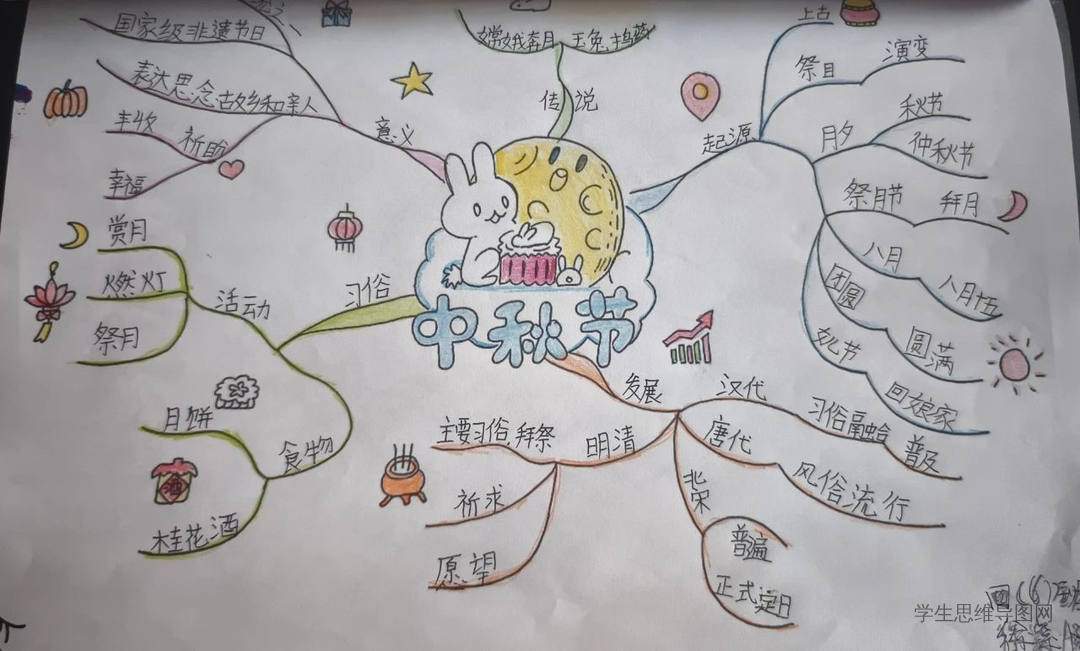 中秋节
传说
嫦娥奔月
玉兔捣药
起源
上古
祭月
演变
月夕
秋节
仲秋节
祭月节
拜月
八月
八月十五
团圆
圆满
女儿节
回娘家
发展
汉代
习俗融合
普及
唐代
风俗流行
北宋
普遍
正式定日
明清
主要习俗,拜祭
祈求
愿望
习俗
活动
赏月
燃灯
祭月
食物
月饼
桂花酒
酒
意义
国家级非遗节日
表达思念,古故乡和亲人
祈盼
丰收
幸福
四(6)班
学生思维导图网